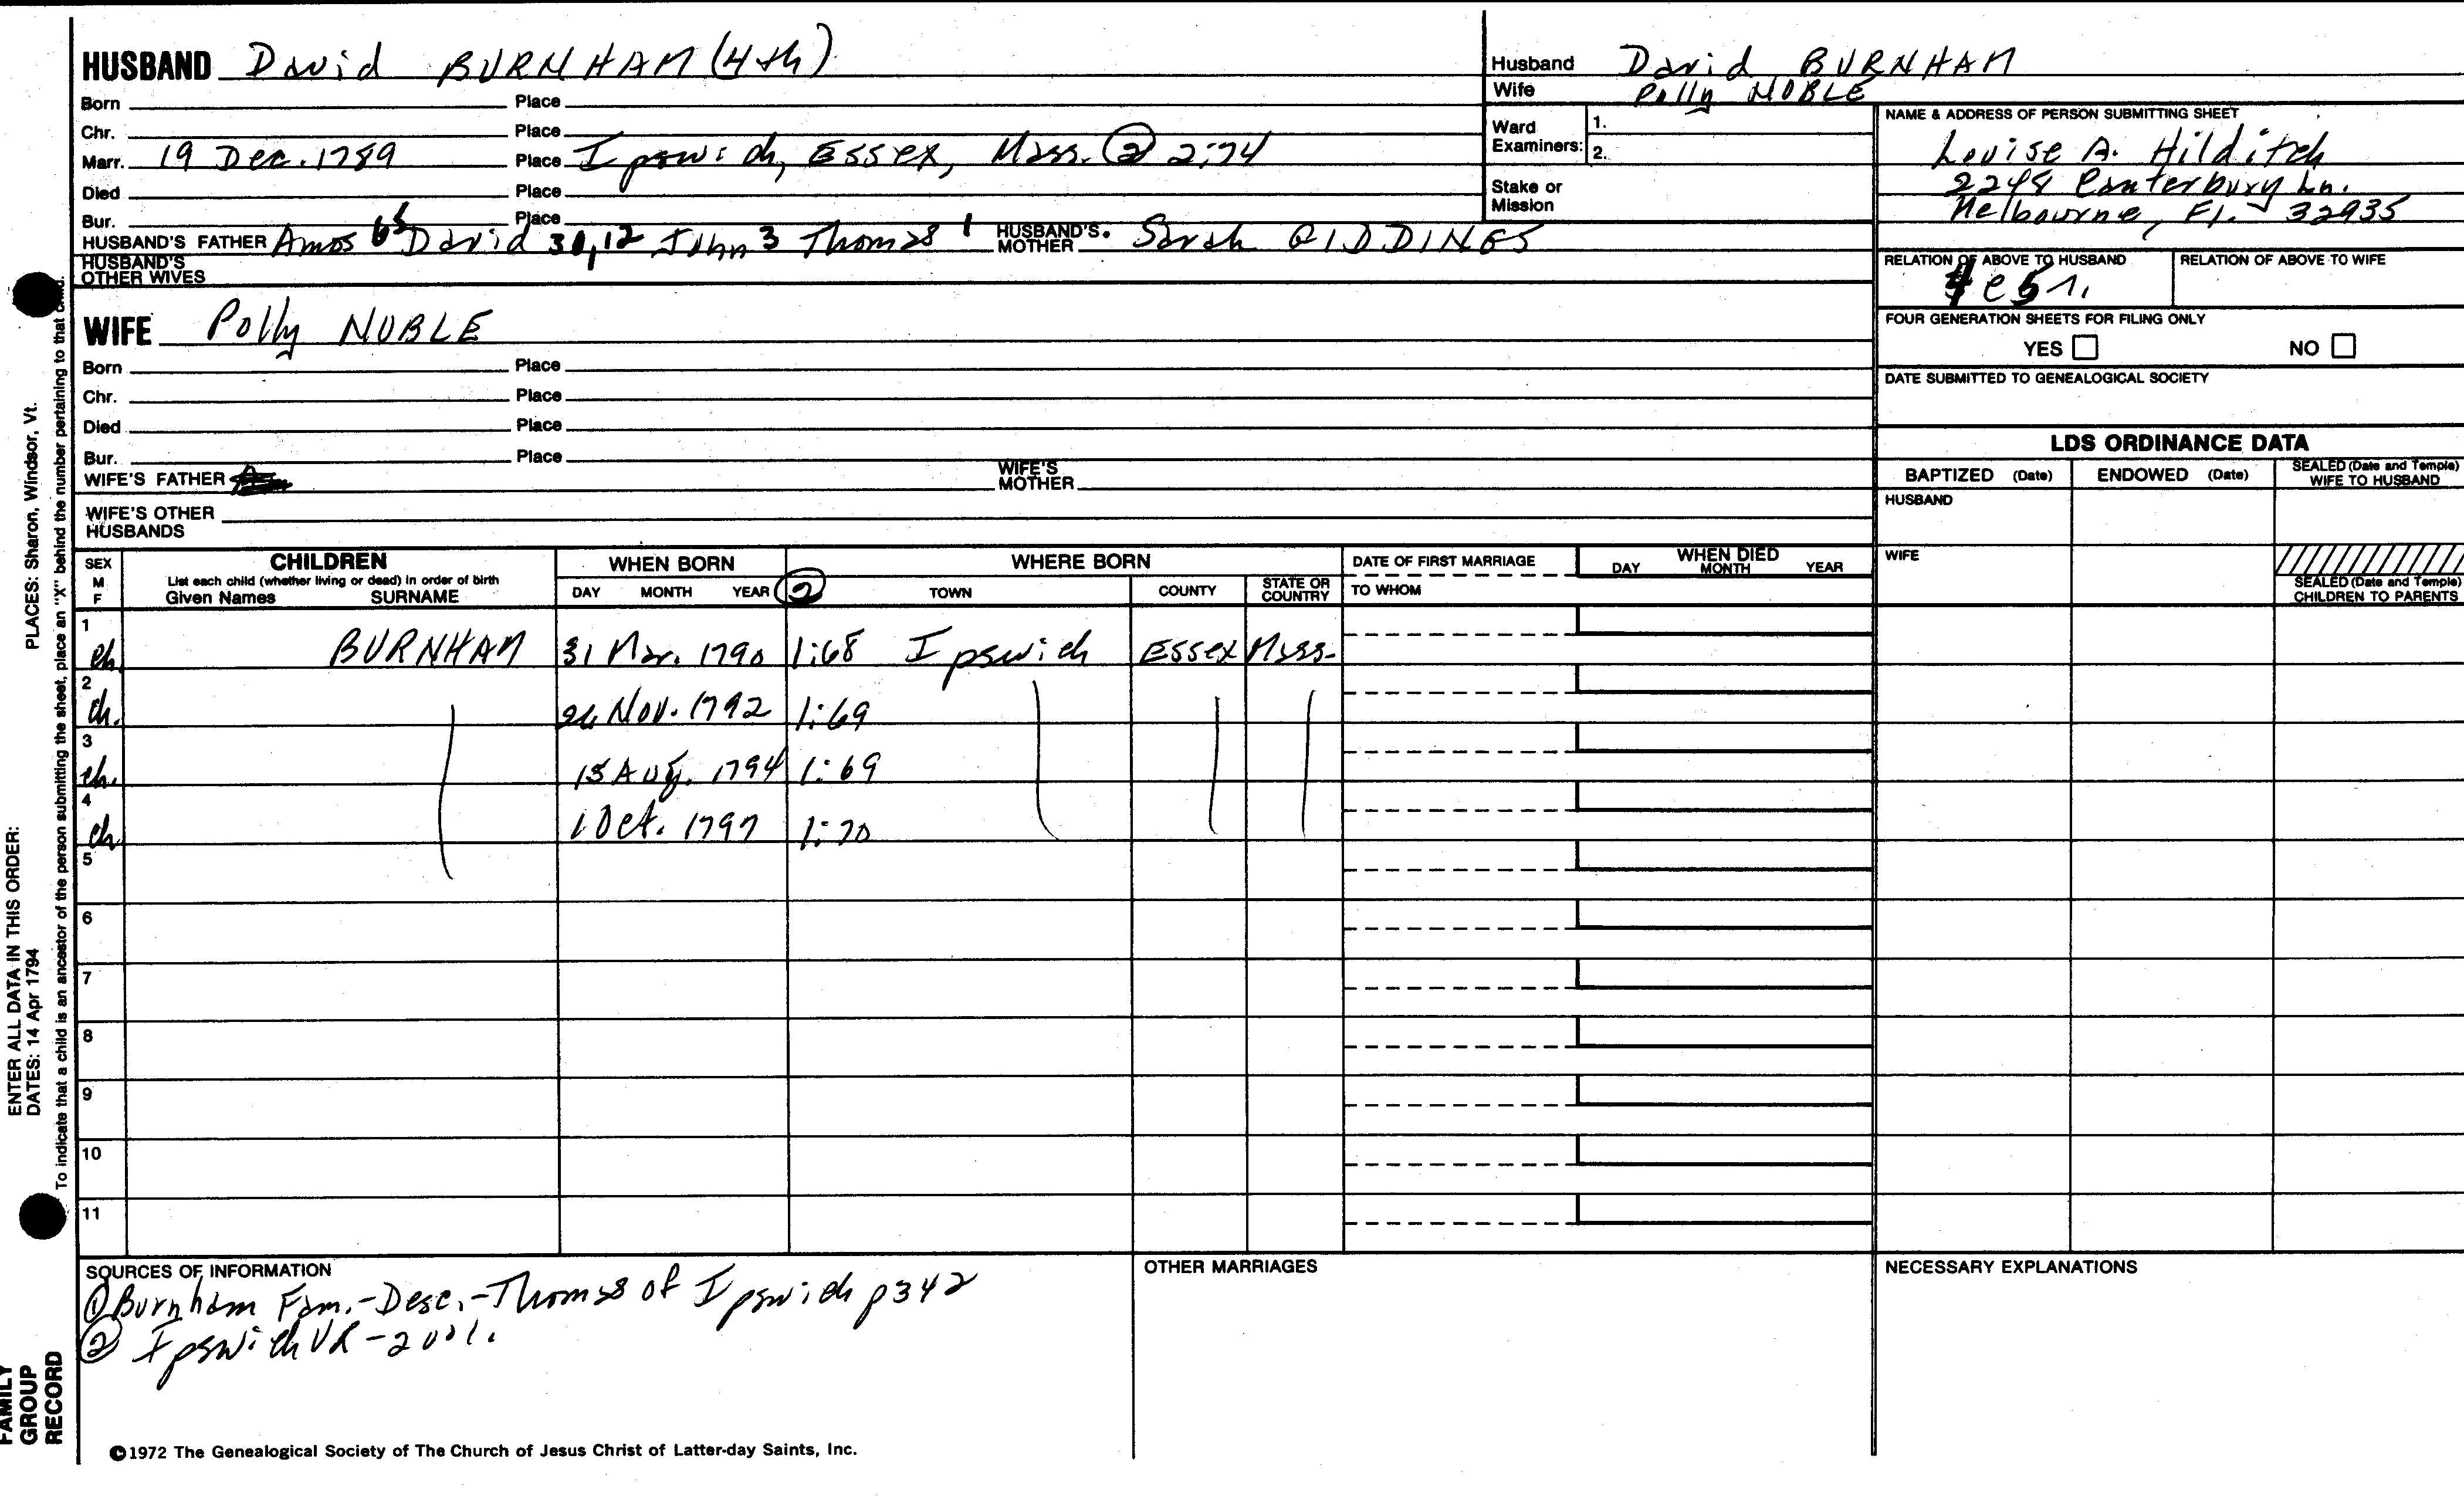 HUSBAND David BURNHAM (4th)
Born Place
Chr. Place
Marr. 19 Dec. 1789 Place Ipswich, Essex, Mass. ② 2:74
Died Place
Bur. Place
HUSBAND'S FATHER Amos 65 David 31,12 John 3 Thomas 1 HUSBAND'S MOTHER Sarah GIDDINGS
HUSBAND'S OTHER WIVES
WIFE Polly NOBLE
Born Place
Chr. Place
Died Place
Bur. Place
WIFE'S FATHER WIFE'S MOTHER
WIFE'S OTHER HUSBANDS
Husband David BURNHAM
Wife Polly NOBLE
Ward Examiners: 1.
2.
Stake or Mission
NAME & ADDRESS OF PERSON SUBMITTING SHEET
Louise A. Hilditch
2248 Canterbury Ln.
Melbourne, Fl. 32935
RELATION OF ABOVE TO HUSBAND RELATION OF ABOVE TO WIFE
FOUR GENERATION SHEETS FOR FILING ONLY
YES NO
DATE SUBMITTED TO GENEALOGICAL SOCIETY
LDS ORDINANCE DATA
BAPTIZED (Date) ENDOWED (Date) SEALED (Date and Temple) WIFE TO HUSBAND
HUSBAND
WIFE
SEALED (Date and Temple) CHILDREN TO PARENTS
SEX M F CHILDREN WHEN BORN WHERE BORN DATE OF FIRST MARRIAGE WHEN DIED
List each child (whether living or dead) in order of birth
Given Names SURNAME DAY MONTH YEAR ② TOWN COUNTY STATE OR COUNTRY TO WHOM DAY MONTH YEAR
1 ch. BURNHAM 31 Mar. 1790 1:68 Ipswich Essex Mass.
2 ch. 24 Nov. 1792 1:69
3 ch. 15 Aug. 1794 1:69
4 ch 1 Oct. 1797 1:70
5
6
7
8
9
10
11
SOURCES OF INFORMATION
① Burnham Fam.-Desc.-Thomas of Ipswich p342
② Ipswich VR - 2 vol.
OTHER MARRIAGES
NECESSARY EXPLANATIONS
©1972 The Genealogical Society of The Church of Jesus Christ of Latter-day Saints, Inc.
FAMILY GROUP RECORD
ENTER ALL DATA IN THIS ORDER:
DATES: 14 Apr 1794
PLACES: Sharon, Windsor, Vt.
To indicate that a child is an ancestor of the person submitting the sheet, place an "X" behind the number pertaining to that child.